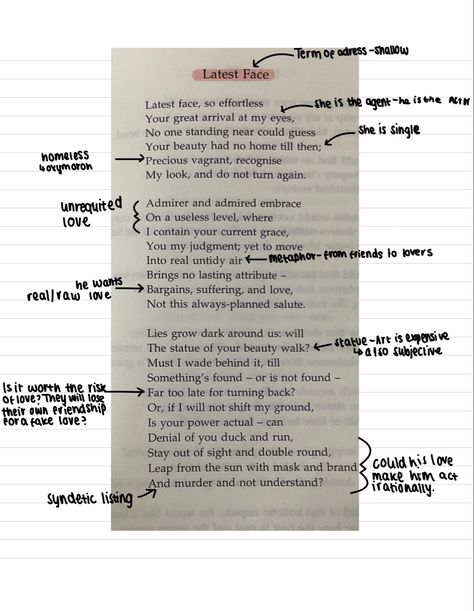 Term of adress - shallow
Latest Face
Latest face, so effortless
Your great arrival at my eyes,
She is the agent - he is the
No one standing near could guess
Your beauty had no home till then;
She is single
homeless
oxymoron
Precious vagrant, recognise
My look, and do not turn again.
unrequited
love
Admirer and admired embrace
On a useless level, where
I contain your current grace,
You my judgment; yet to move
Into real untidy air
metaphor - from friends to lovers
Brings no lasting attribute –
he wants
real/raw love
Bargains, suffering, and love,
Not this always-planned salute.
Lies grow dark around us: will
The statue of your beauty walk?
statue - Art is expensive
also subjective
Must I wade behind it, till
Something's found – or is not found –
Is it worth the risk
of love? They will lose
their own friendship
for a fake love?
Far too late for turning back?
Or, if I will not shift my ground,
Is your power actual – can
Denial of you duck and run,
Stay out of sight and double round,
Leap from the sun with mask and brand
And murder and not understand?
could his love
make him act
irationally.
syndetic listing